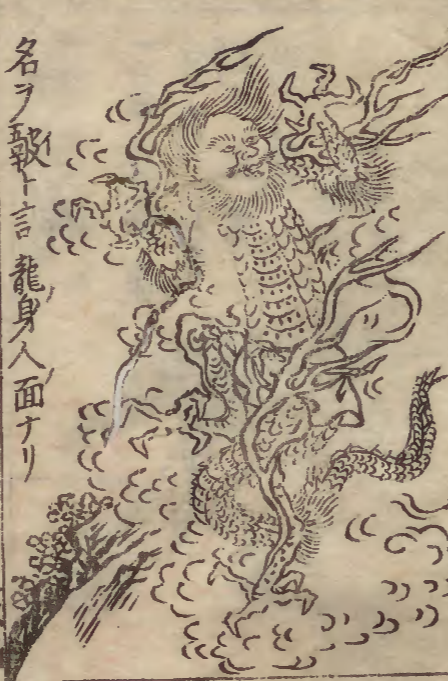 名ヲ皷ト言 龍身人面ナリ